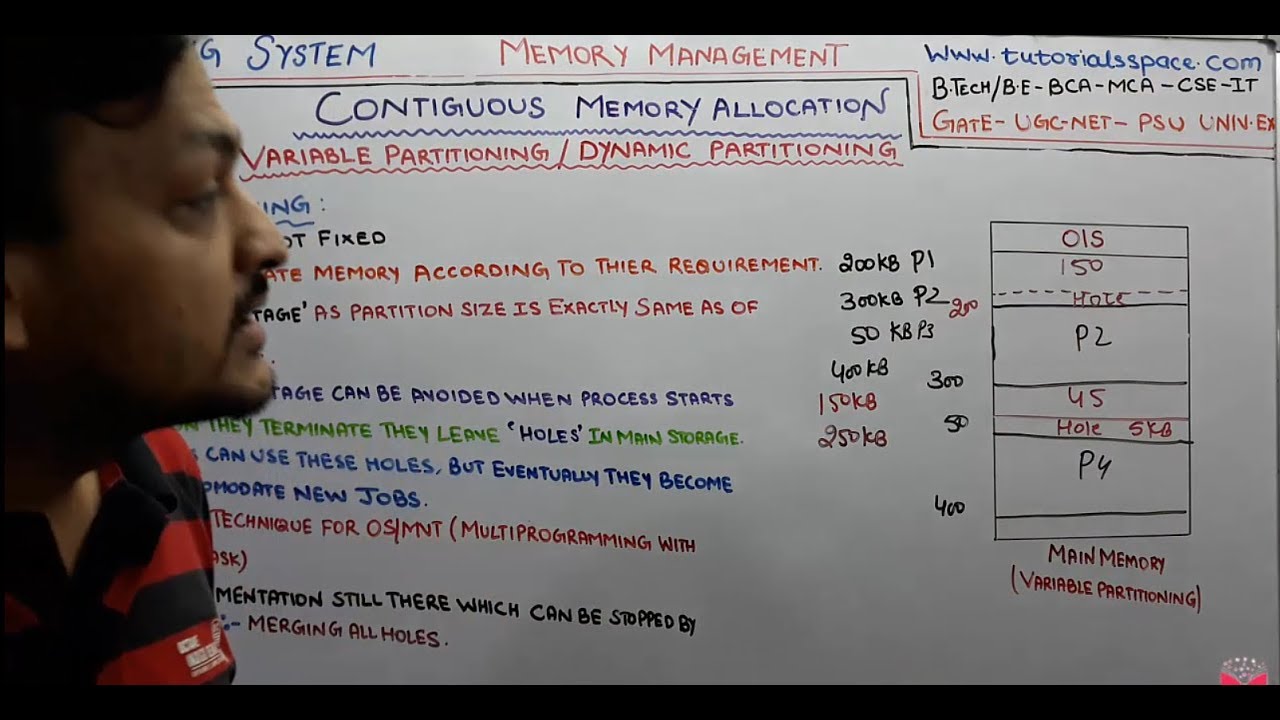 G SYSTEM
MEMORY MANAGEMENT
www.tutorialsspace.com
B.TECH/B.E-BCA-MCA-CSE-IT
GATE-UGC-NET-PSU UNIV.EX
CONTIGUOUS MEMORY ALLOCATION
VARIABLE PARTITIONING/DYNAMIC PARTITIONING
ING:
OT FIXED
ATE MEMORY ACCORDING TO THIER REQUIREMENT.
TAGE' AS PARTITION SIZE IS EXACTLY SAME AS OF
.
TAGE CAN BE AVOIDED WHEN PROCESS STARTS
ON THEY TERMINATE THEY LEAVE 'HOLES' IN MAIN STORAGE.
S CAN USE THESE HOLES, BUT EVENTUALLY THEY BECOME
OMODATE NEW JOBS.
TECHNIQUE FOR OS/MNT (MULTIPROGRAMMING WITH
ASK)
MENTATION STILL THERE WHICH CAN BE STOPPED BY
:- MERGING ALL HOLES.
200KB P1
300KB P2
50 KB P3
400KB
150KB
250KB
200
300
50
400
O1S
150
HOLE
P2
45
Hole 5KB
P4
MAIN MEMORY
(VARIABLE PARTITIONING)